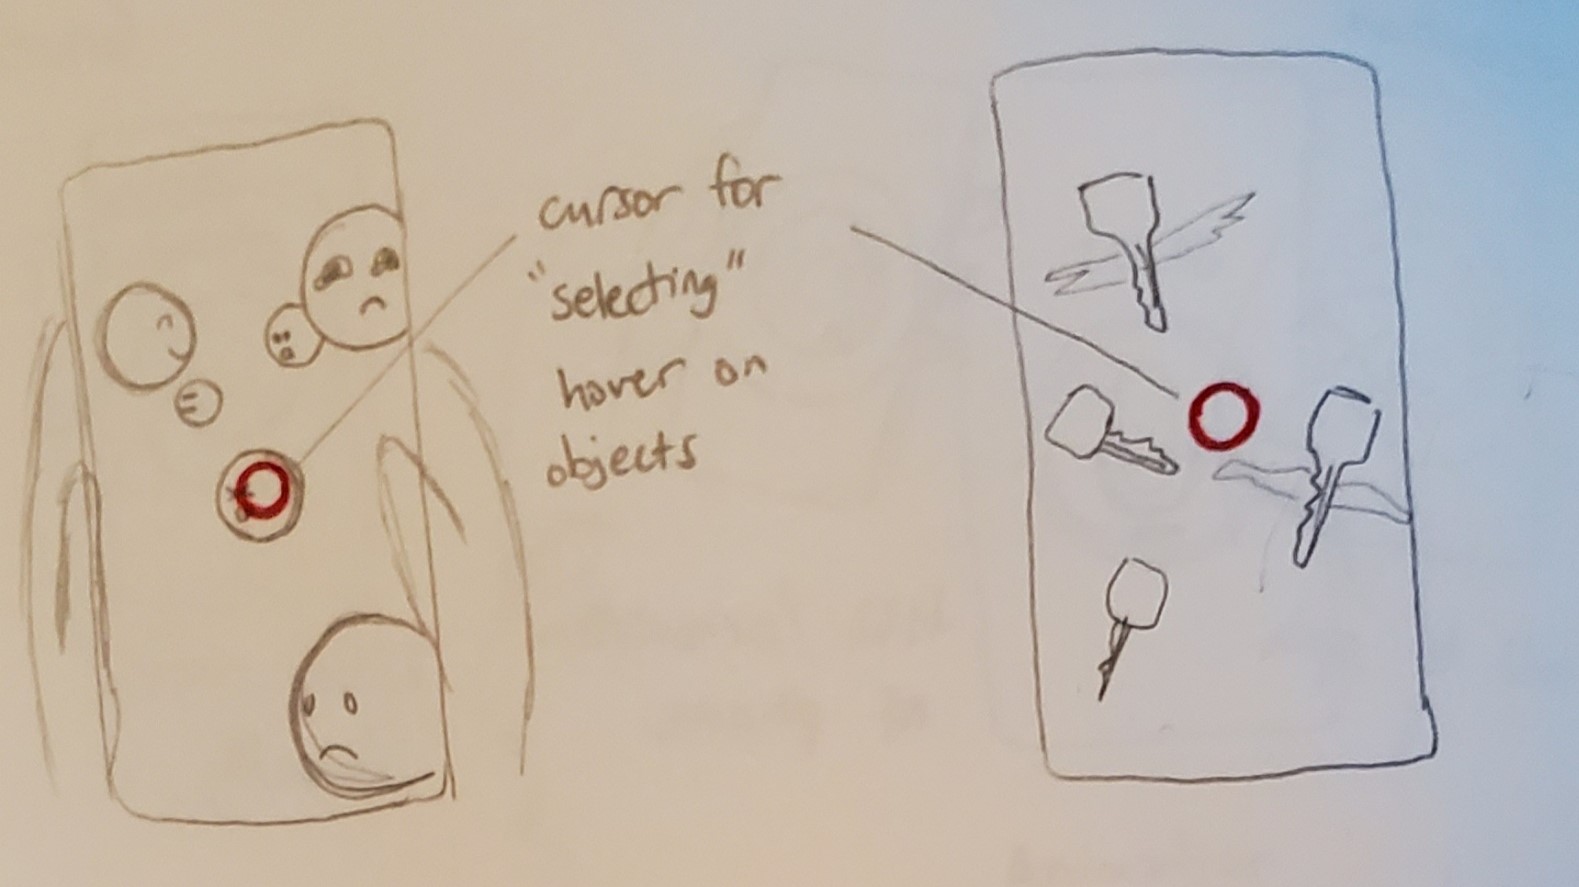 cursor for
"selecting"
hover on
objects